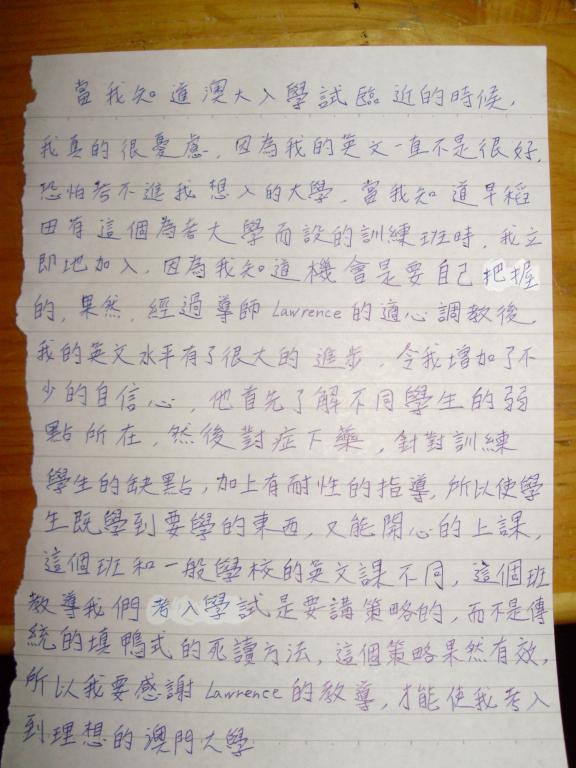 當我知道澳大入學試臨近的時候，
我真的很憂慮，因為我的英文一直不是很好，
恐怕考不進我想入的大學，當我知道早稻
田有這個為考大學而設的訓練班時，我立
即地加入，因為我知道機會是要自己把握
的，果然，經過導師Lawrence的適心調教後，
我的英文水平有了很大的進步，令我增加了不
少的自信心，他首先了解不同學生的弱
點所在，然後對症下藥，針對訓練
學生的缺點，加上有耐性的指導，所以使學
生既學到要學的東西，又能開心的上課，
這個班和一般學校的英文課不同，這個班
教導我們考入學試是要講策略的，而不是傳
統的填鴨式的死讀方法，這個策略果然有效，
所以我要感謝Lawrence的教導，才能使我考入
到理想的澳門大學